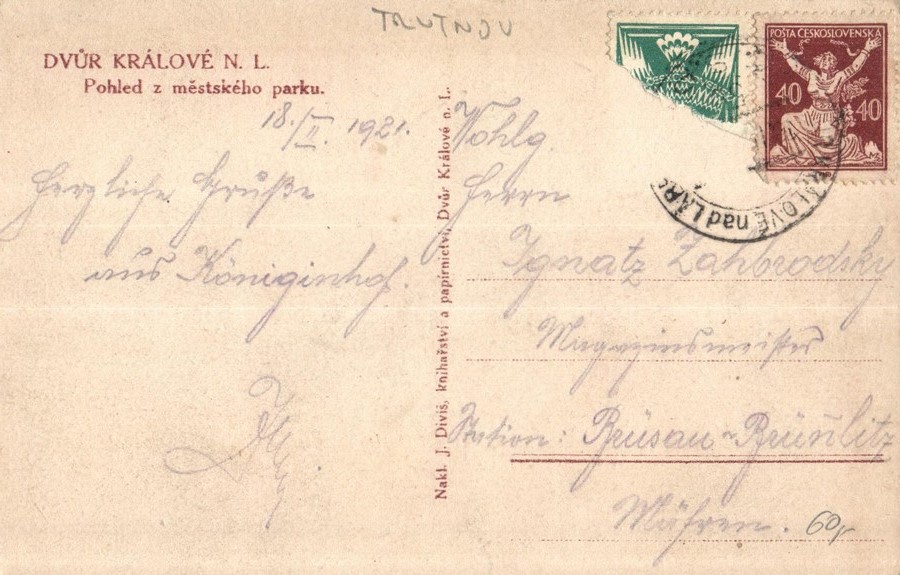 TRUTNOV
DVŮR KRÁLOVÉ N. L.
Pohled z městského parku.
18./II. 1921.
Herzliche Grüße
aus Königinhof.
Nakl. J. Diviš, knihařství a papírnictví, Dvůr Králové n. L.
POŠTA ČESKOSLOVENSKÁ
40 40
KRÁLOVÉ nad LAB
Wohlg.
Herrn
Ignatz Zahbrodsky
Magazinsmeister
Station: Brüsau-Brünnlitz
Mähren.
60,